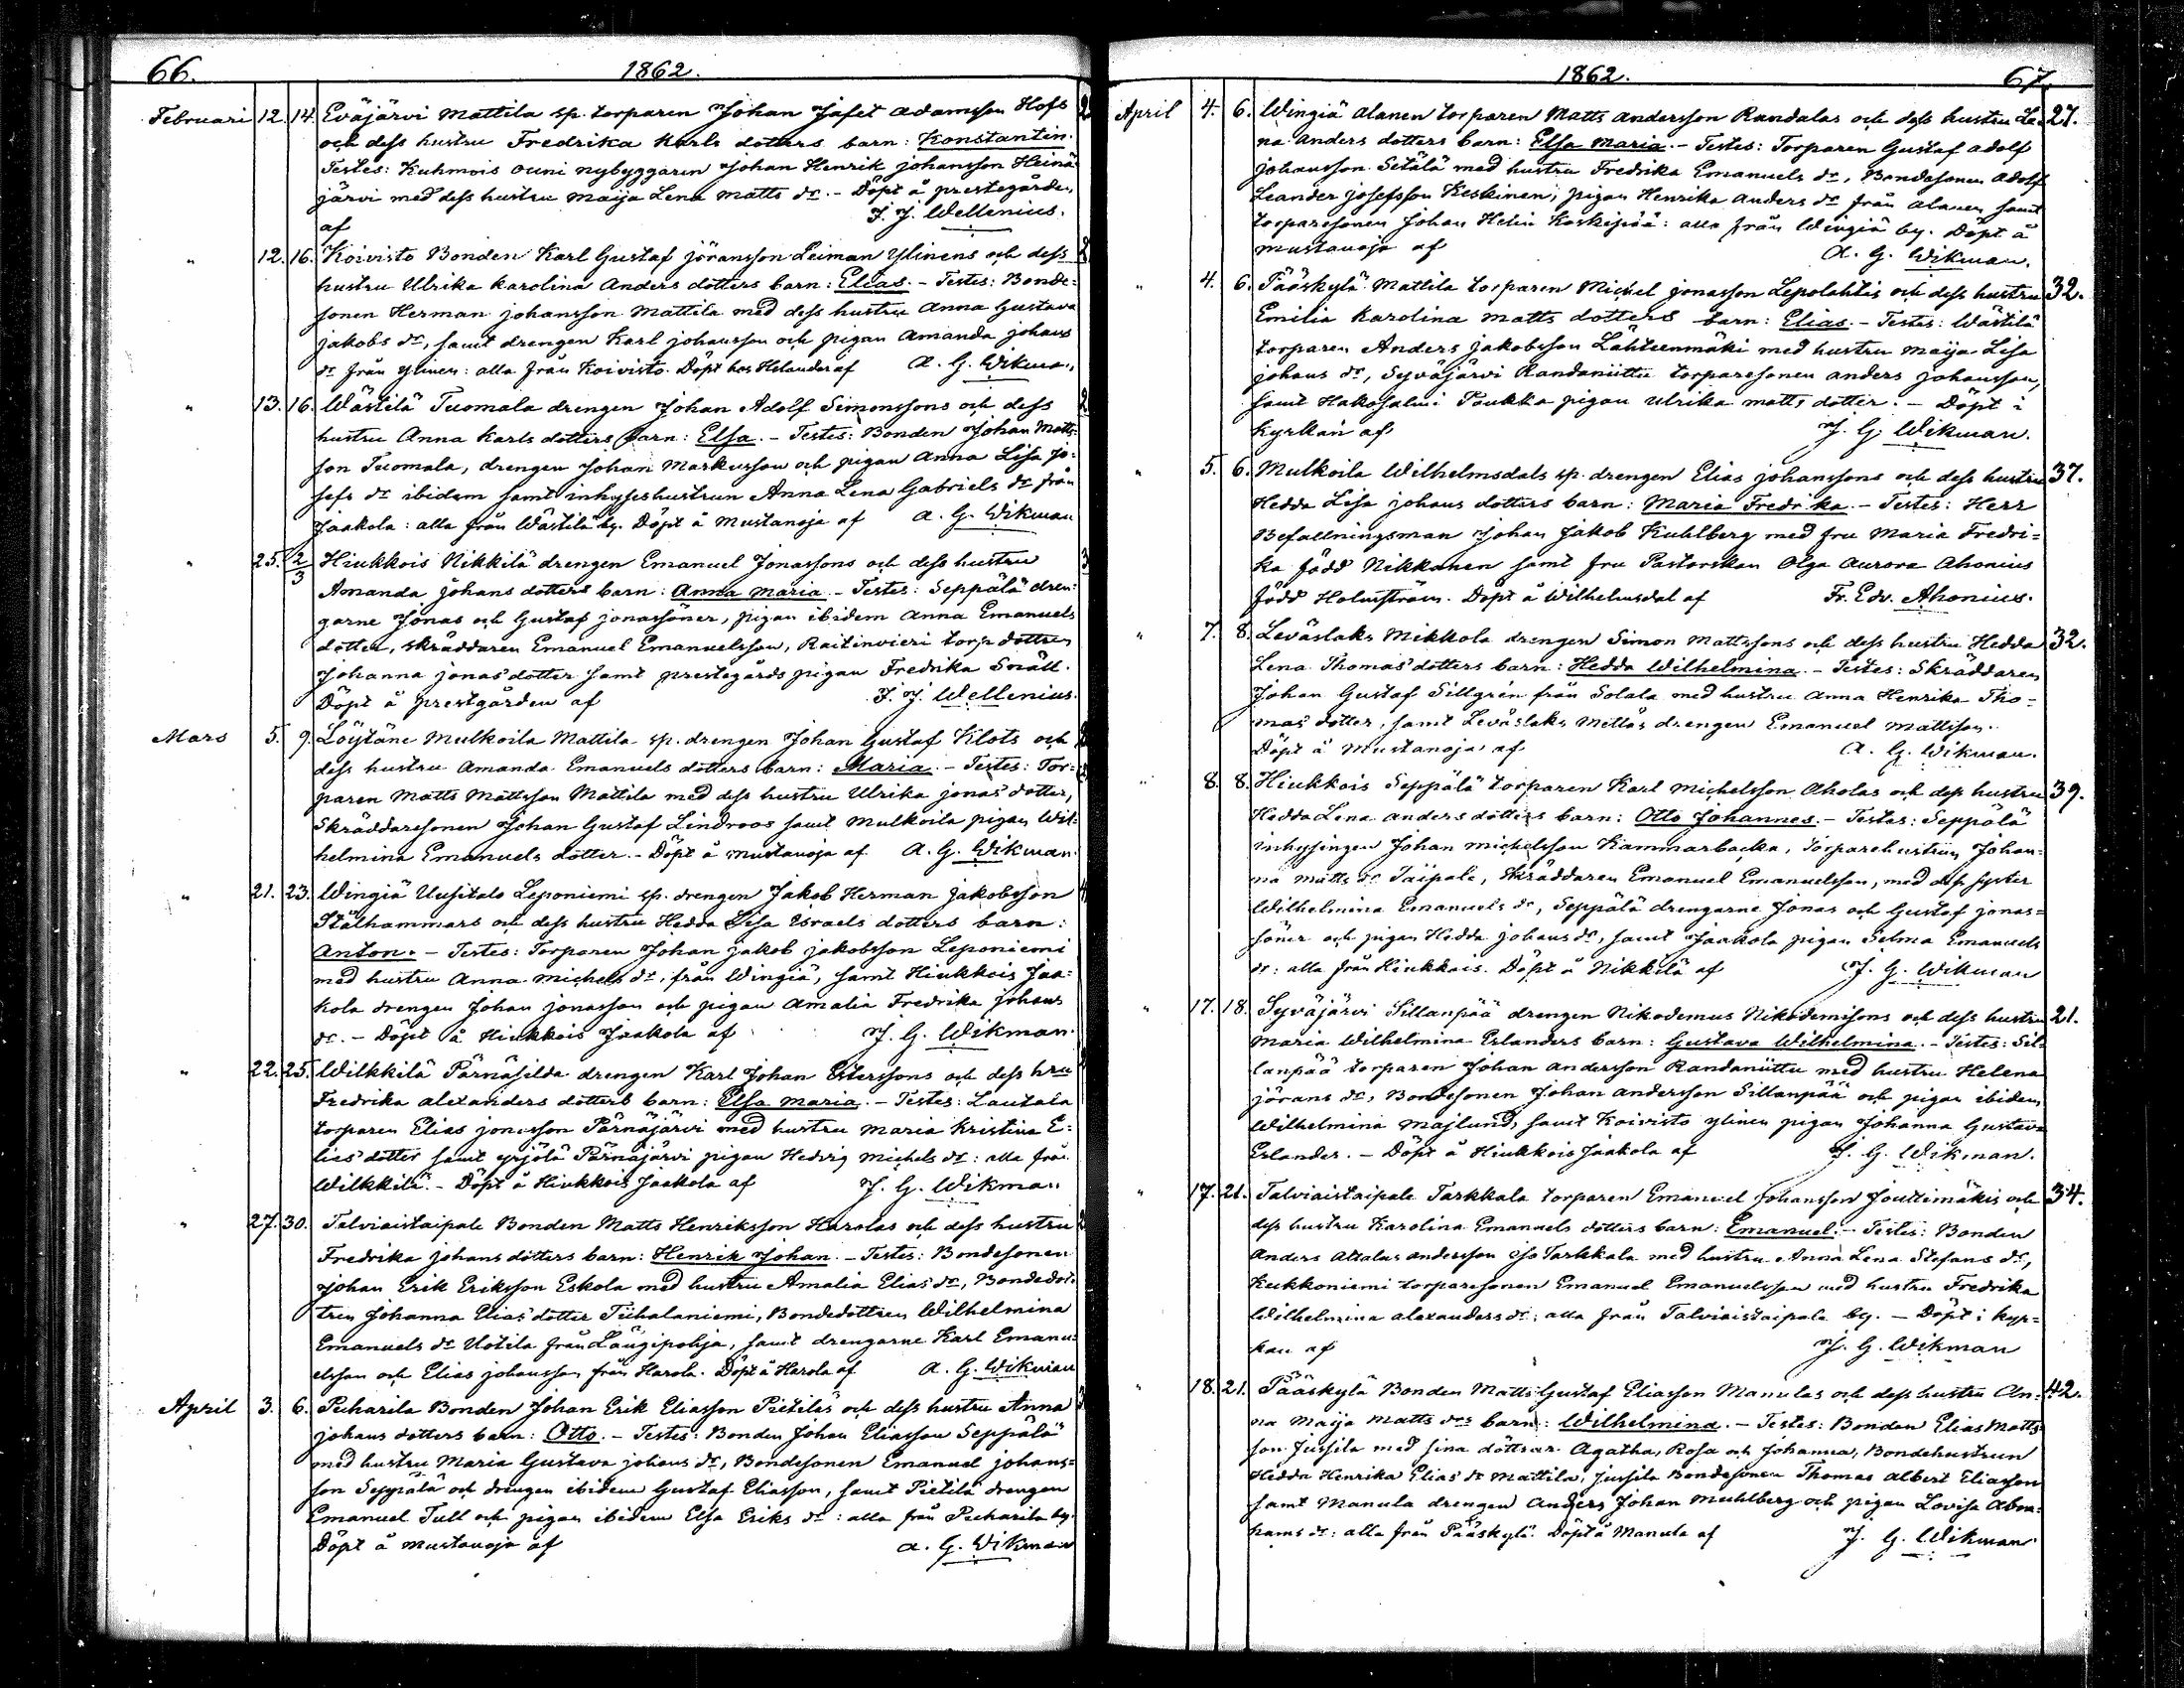 66. 1862.
Februari 12. 14. Eväjärvi Mattila sp. torparen Johan Jafet Adamsson Hofs
och dess hustru Fredrika Karls dotters barn: Konstantin.
Testes: Kuhmois Ouni nybyggaren Johan Henrik Johansson Heinä-
järvi med dess hustru Maija Lena Matts dr. - Döpt å prestegården
af J. J. Wellenius.
" 12. 16. Koivisto Bonden Karl Gustaf Jöransson Leiman Ylinens och dess
hustru Ulrika Karolina Anders dotters barn: Elias. - Testes: Bonde-
sonen Herman Johansson Mattila med dess hustru Anna Gustava
Jakobs dr, samt drengen Karl Johansson och pigan Amanda Johans
dr från Ylinen: alla från Koivisto. Döpt hos Helander af A. G. Wikman
" 13. 16. Wästilä Tuomala drengen Johan Adolf Simonssons och dess
hustru Anna Karls dotters barn: Elsa. - Testes: Bonden Johan Matts-
son Tuomala, drengen Johan Markusson och pigan Anna Lisa Jo-
sefs dr ibidem samt inhyseshustrun Anna Lena Gabriels dr från
Jaakola: alla från Wästilä by. Döpt å Mustanoja af A. G. Wikman
" 25. 2/3 Hiukkois Nikkilä drengen Emanuel Jonassons och dess hustru
Amanda Johans dotters barn: Anna Maria. - Testes: Seppälä dren-
garne Jonas och Gustaf Jonassöner, pigan ibidem Anna Emanuels
dotter, skräddaren Emanuel Emanuelsson, Raitinvieri torp dottren
Johanna Jonas dotter samt prestegårds pigan Fredrika Snäll.
Döpt å prestgården af J. J. Wellenius.
Mars 5. 9. Löytäne Mulkoila Mattila sp. drengen Johan Gustaf Klots och
dess hustru Amanda Emanuels dotters barn: Maria. - Testes: Tor-
paren Matts Mattsson Mattila med dess hustru Ulrika Jonas dotter,
Skräddaresonen Johan Gustaf Lindroos samt Mulkoila pigan Wil-
helmina Emanuels dotter. - Döpt å Mustanoja af A. G. Wikman.
" 21. 23. Wingiä Uusitalo Leponiemi sp. drengen Jakob Herman Jakobsson
Stålhammars och dess hustru Hedda Lisa Israels dotters barn:
Anton. - Testes: Torparen Johan Jakob Jakobsson Leponiemi
med hustru Anna Michels dr, från Wingiä, samt Hiukkois Jaa-
kola drengen Johan Jonasson och pigan Amalia Fredrika Johans
dr. - Döpt å Hiukkois Jaakola af J. G. Wikman.
" 22. 25. Wilkkilä Pärnäsilda drengen Karl Johan Esterssons och dess hru
Fredrika Alexanders dotters barn: Elsa Maria. - Testes: Lautala
torparen Elias Jonasson Pärnäjärvi med hustru Maria Kristina E-
lies dotter samt Yrjölä Pärnäjärvi pigan Hedvig Michels dr: alla från
Wilkkilä. - Döpt å Hiukkois Jaakola af J. G. Wikman
" 27. 30. Talviaistaipale Bonden Matts Henriksson Harolas och dess hustru
Fredrika Johans dotters barn: Henrik Johan. - Testes: Bondesonen
Johan Erik Eriksson Eskola med hustru Amalia Elias dr, Bondedot-
tren Johanna Elias dotter Tiihalaniemi, Bondedottren Wilhelmina
Emanuels dr Uotila från Längipohja, samt drengarne Karl Emanu-
elsson och Elias Johansson från Harola. Döpt å Harola af A. G. Wikman
April 3. 6. Puharila Bonden Johan Erik Eliasson Pietiläs och dess hustru Anna
Johans dotters barn: Otto. - Testes: Bonden Johan Eliasson Seppälä
med hustru Maria Gustava Johans dr, Bondesonen Emanuel Johans-
son Seppälä och drengen ibidem Gustaf Eliasson, samt Pietilä drengen
Emanuel Tull och pigan ibidem Elsa Eriks dr: alla från Puharila by.
Döpt å Mustanoja af A. G. Wikman
1862. 67.
April 4. 6. Wingiä Alanen torparen Matts Andersson Randalas och dess hustru Le- 27.
na Anders dotters barn: Elsa Maria. - Testes: Torparen Gustaf Adolf
Johansson Setälä med hustru Fredrika Emanuels dr, Bondesonen Adolf
Leander Josefsson Keskinen, pigan Henrika Anders dr från Alanen samt
torparesonen Johan Helin Koskipää: alla från Wingiä by. Döpt å
Mustanoja af A. G. Wikman.
" 4. 6. Pääskylä Mattila torparen Michel Jonasson Lepolahtis och dess hustru 32.
Emilia Karolina Matts dotters barn: Elias. - Testes: Wästilä
torparen Anders Jakobsson Lähteenmäki med hustru Maija Lisa
Johans dr, Syväjärvi Randaniittu torparesonen Anders Johansson,
samt Hakosalmi Poukka pigan Ulrika Matts dotter. - Döpt i
Kyrkan af J. G. Wikman.
" 5. 6. Mulkoila Wilhelmsdals sp. drengen Elias Johanssons och dess hustru 37.
Hedda Lisa Johans dotters barn: Maria Fredrika. - Testes: Herr
Befallningsman Johan Jakob Kuhlberg med fru Maria Fredri-
ka född Nikkanen samt fru Pastorskan Olga Aurora Ahonius
född Holmström. Döpt å Wilhelmsdal af Fr. Edv. Ahonius.
" 7. 8. Leväslaks Mikkola drengen Simon Mattssons och dess hustru Hedda 32.
Lena Thomas dotters barn: Hedda Wilhelmina. - Testes: Skräddaren
Johan Gustaf Sillgrén från Solala med hustru Anna Henrika Tho-
mas dotter, samt Leväslaks Mellös drengen Emanuel Mattsson.
Döpt å Mustanoja af A. G. Wikman.
" 8. 8. Hiukkois Seppälä torparen Karl Michelsson Aholas och dess hustru 39.
Hedda Lena Anders dotters barn: Otto Johannes. - Testes: Seppälä
inhysingen Johan Michelsson Kammarbacka, Torparehustrun Johan-
na Matts dr Taipale, Skräddaren Emanuel Emanuelsson, med dess syster
Wilhelmina Emanuels dr, Seppälä drengarne Jonas och Gustaf Jonas-
söner och pigan Hedda Johans dr, samt Jaakola pigan Selma Emanuels
dr: alla från Hiukkois. Döpt å Nikkilä af J. G. Wikman
" 17. 18. Syväjärvi Sillanpää drengen Nikodemus Nikodemissons och dess hustru 21.
Maria Wilhelmina Erlanders barn: Gustava Wilhelmina. - Testes: Sil-
lanpää torparen Johan Andersson Randaniittu med hustru Helena
Jörans dr, Bondesonen Johan Andersson Sillanpää och pigan ibidem
Wilhelmina Majlund, samt Koivisto Ylinen pigan Johanna Gustava
Erlander. - Döpt å Hiukkois Jaakola af J. G. Wikman.
" 17. 21. Talviaistaipale Tarkkala torparen Emanuel Johansson Joutimäkis och 34.
dess hustru Karolina Emanuels dotters barn: Emanuel. - Testes: Bonden
Anders Attalus Andersson Iso Tarkkala med hustru Anna Lena Stefans dr,
Kukkoniemi torparesonen Emanuel Emanuelsson med hustru Fredrika
Wilhelmina Alexanders dr: alla från Talviaistaipale by. - Döpt i kyr-
kan af J. G. Wikman
" 18. 21. Pääskylä Bonden Matts Gustaf Eliasson Manulas och dess hustru An- 42.
na Maija Matts drs barn: Wilhelmina. - Testes: Bonden Elias Matts-
son Jussila med sina döttrar Agatha, Rosa och Johanna, Bondehustrun
Hedda Henrika Elias dr Mattila, Jussila Bondesonen Thomas Albert Eliasson
samt Manula drengen Anders Johan Muhlberg och pigan Lovisa Abra-
hams dr: alla från Pääskylä. Döpt å Manula af J. G. Wikman